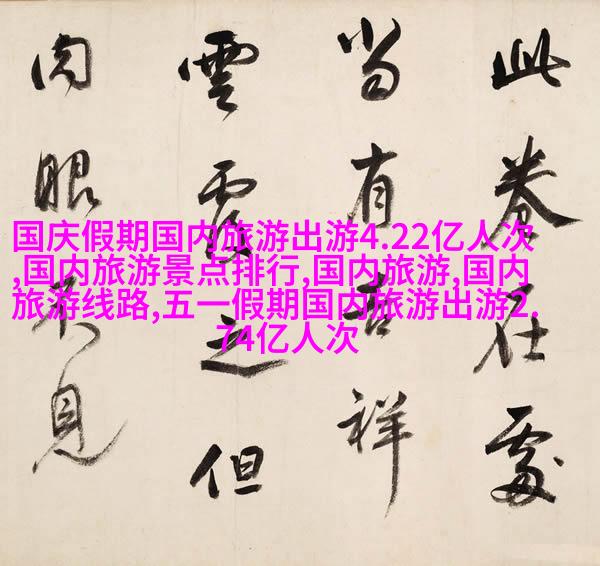 此卷在處
當有吉祥
雲覆之但
肉眼不見
国庆假期国内旅游出游4.22亿人次
,国内旅游景点排行,国内旅游,国内
旅游线路,五一假期国内旅游出游2.
74亿人次